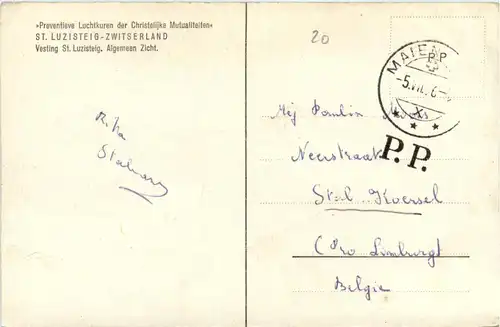 »Preventieve Luchtkuren der Christelijke Mutualiteiten«
ST. LUZISTEIG-ZWITSERLAND
Vesting St. Luzisteig. Algemeen Zicht.
20
MAIEN
P.P.
-5.VII.6
P.P.
Rika
Mej Paulin
Neerstraat
St-l Koersel
(Pro Limburgt
Belgie